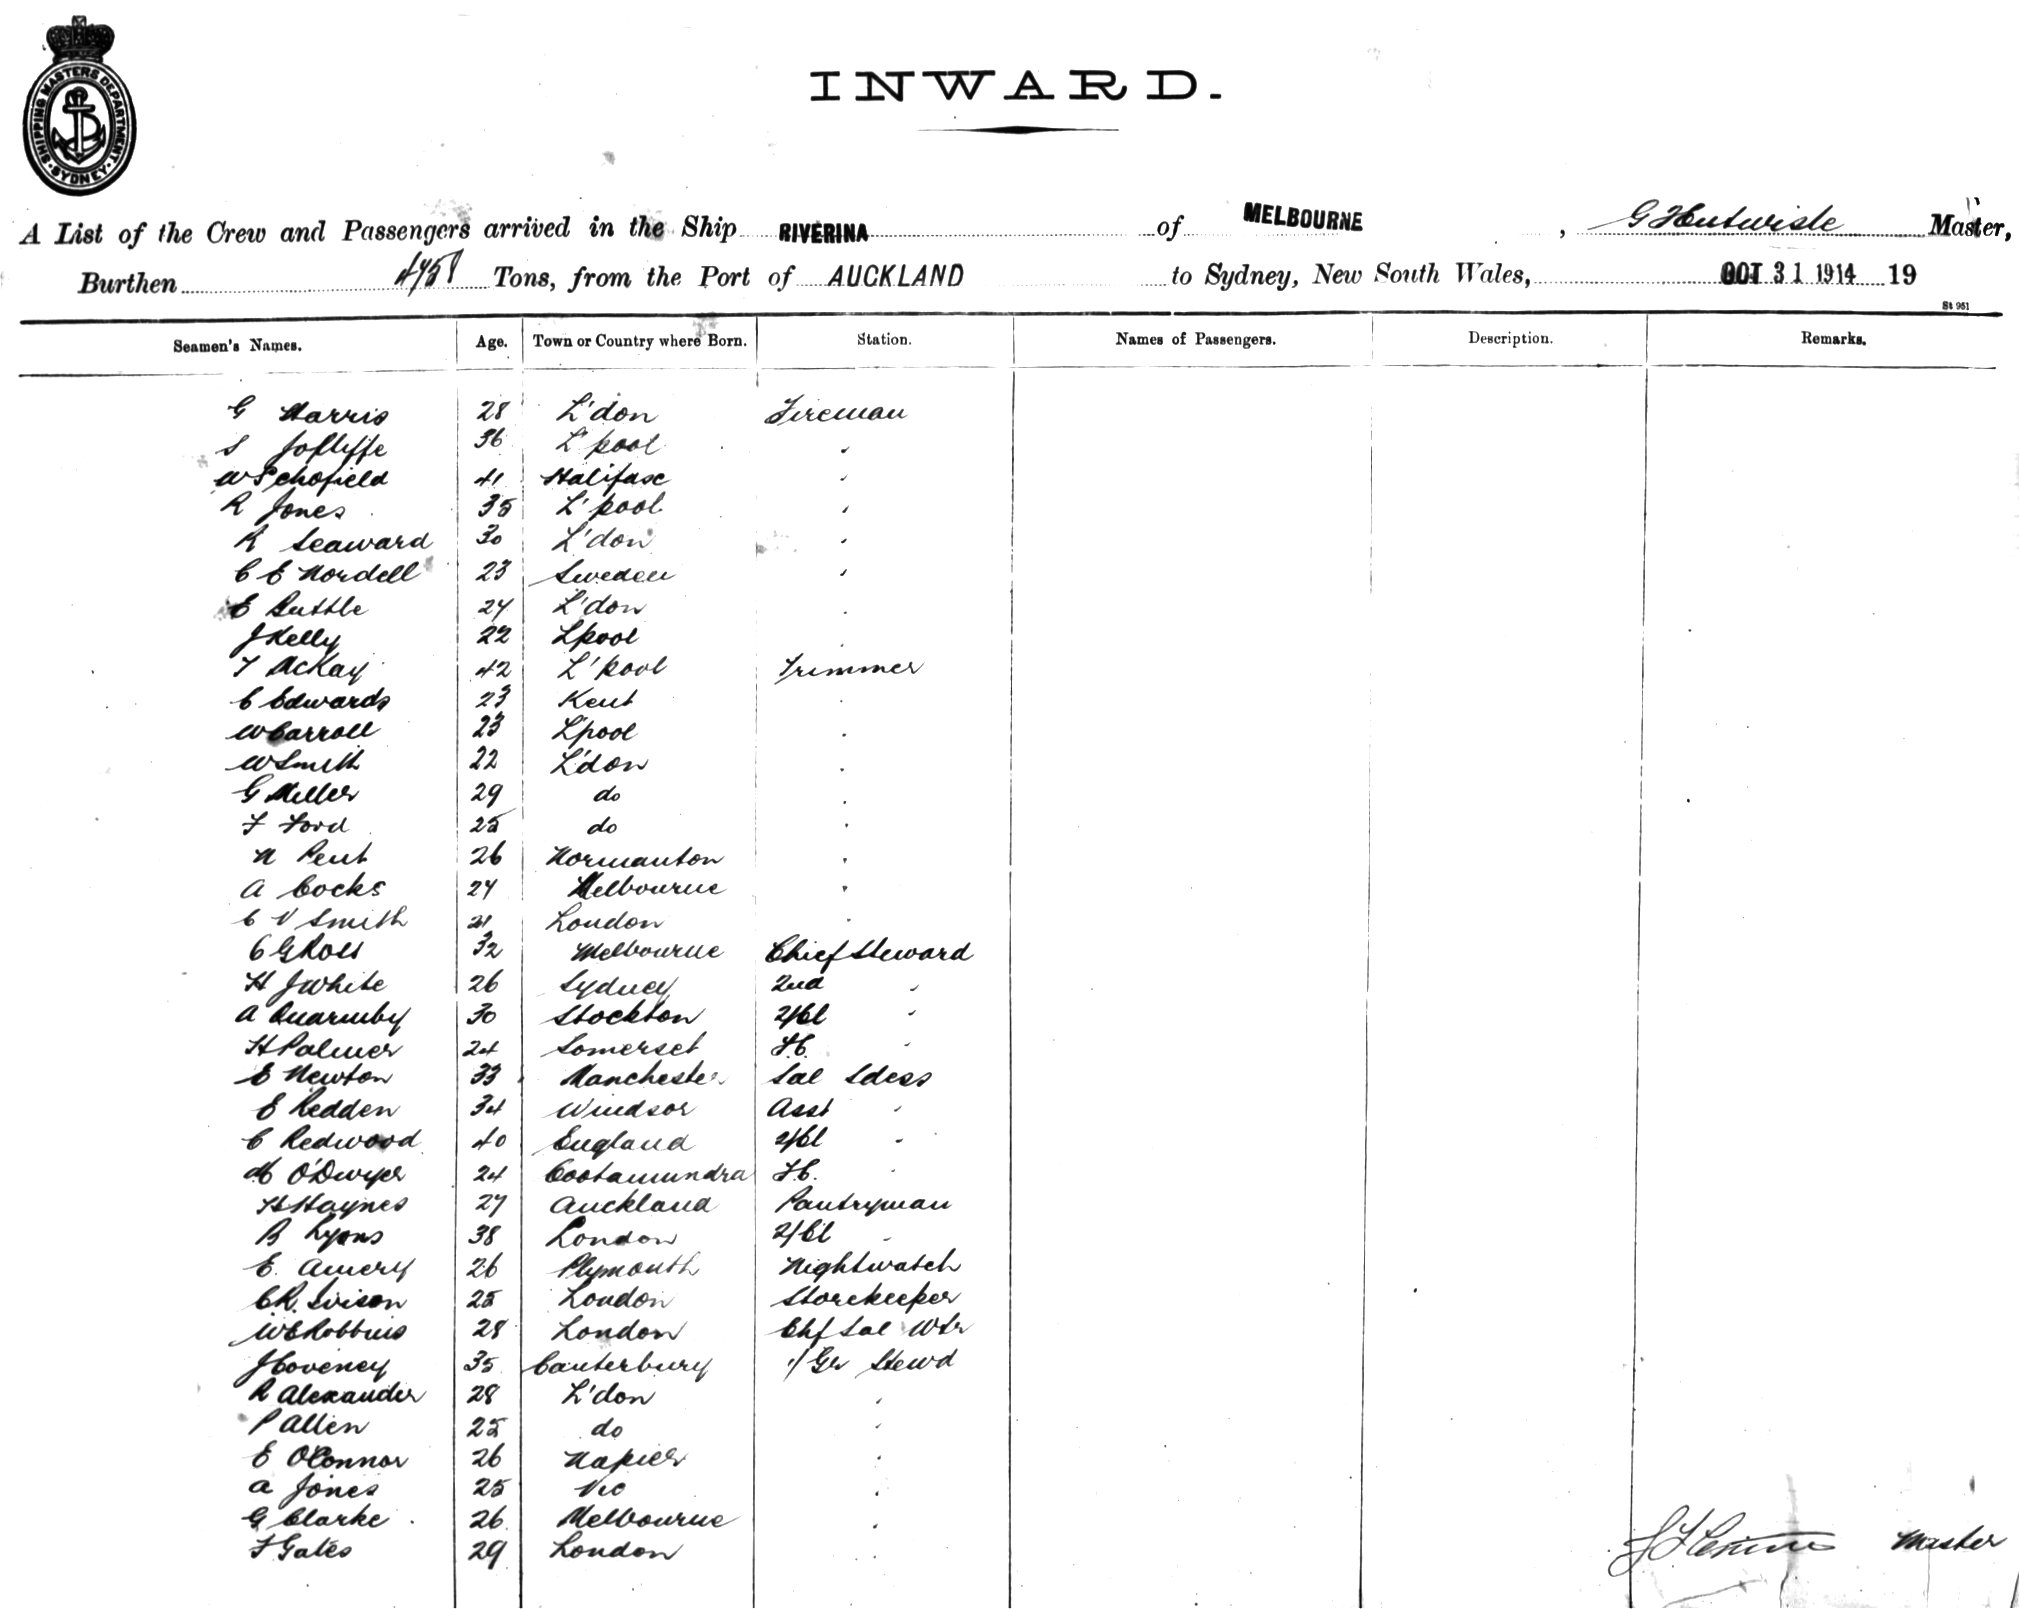 SHIPPING MASTERS DEPARTMENT · SYDNEY ·
INWARD.
A List of the Crew and Passengers arrived in the Ship RIVERINA of MELBOURNE, G Hentwisle Master,
Burthen 4758 Tons, from the Port of AUCKLAND to Sydney, New South Wales, OCT 31 1914 19
St 951
Seamen's Names. Age. Town or Country where Born. Station. Names of Passengers. Description. Remarks.
G Harris 28 L'don Fireman
S Jolliffe 36 L'pool "
W Schofield 41 Halifax "
R Jones 35 L'pool "
R Seaward 30 L'don "
C E Nordell 23 Sweden "
E Buttle 24 L'don "
J Kelly 22 Lpool "
T McKay 42 L'pool Trimmer
C Edwards 23 Kent "
W Carroll 23 Lpool "
W Smith 22 L'don "
G Miller 29 do "
F Ford 25 do "
N Pent 26 Normanton "
A Cocks 24 Melbourne "
C V Smith 21 London "
C G Ross 32 Melbourne Chief Steward
H J White 26 Sydney 2nd "
A Quarmby 30 Stockton 2/Cl "
H Palmer 24 Somerset F.C. "
E Newton 33 Manchester Sal Sdess
E Redden 34 Windsor Asst "
C Redwood 40 England 2/Cl "
M O'Dwyer 24 Cootamundra F.C. "
H Haynes 27 Auckland Pantryman
B Lyons 38 London 2/Cl "
E. Amery 26 Plymouth Nightwatch
C R. Ivison 25 London Storekeeper
W E Robbins 28 London Chf Sal Wtr
J Coveney 35 Canterbury 1/Gr Stewd
R Alexander 28 L'don "
P Allen 25 do "
E O'Connor 26 Napier "
A Jones 25 Vic "
G Clarke 26 Melbourne "
F Gates 29 London
Master